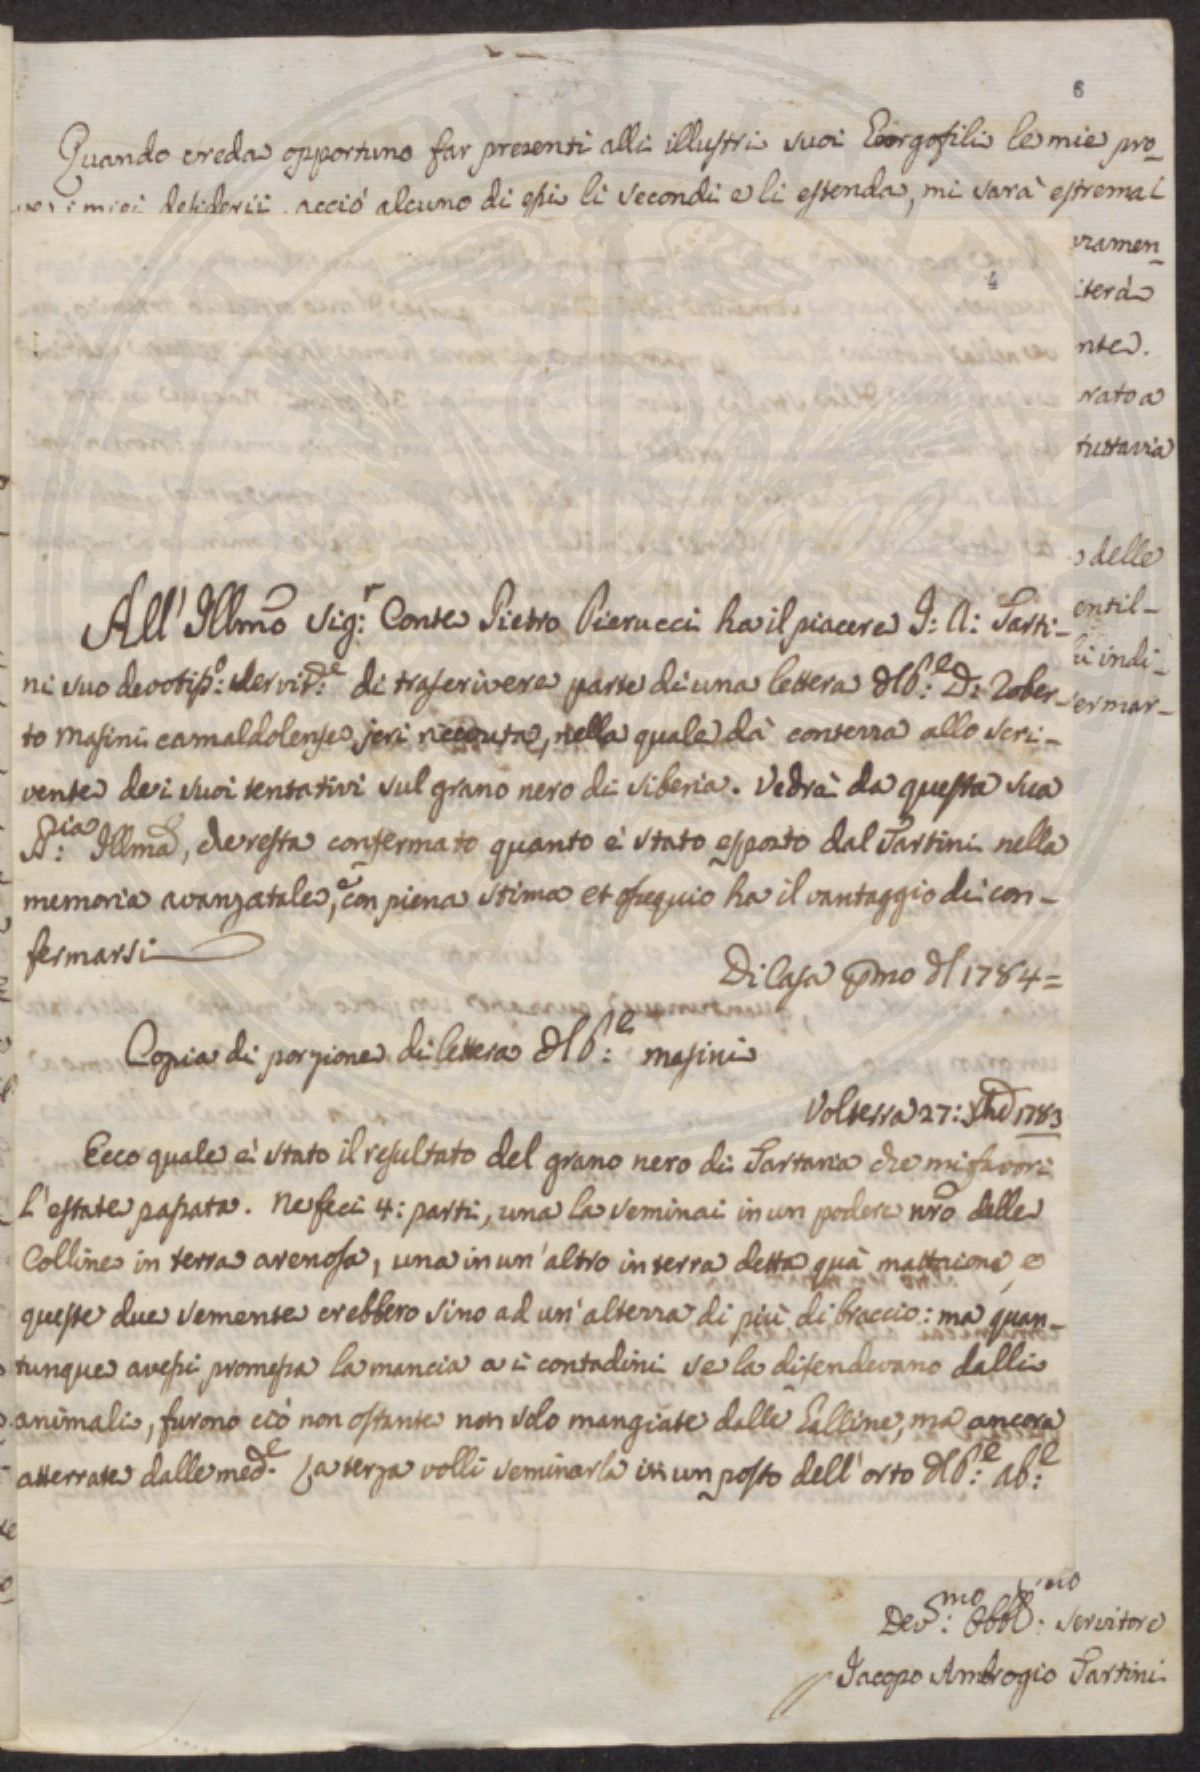 6
Quando creda opportuno far presenti alli illustri suoi Georgofili le mie pro-
miei desiderii, acciò alcuno di essi li secondi e li estenda, mi sarà estremai
vramen-
iterà
nte.
rato a
tuttavia
delle
entil-
indi-
ermar-
4
All' Illmo Sig:r Conte Pietro Pierucci ha il piacere J: A: Tarti-
ni suo devotiss:o servit:e di trascrivere parte di una lettera dl P:e D: Rober-
to Masini camaldolense jeri ricevuta, nella quale dà contezza allo scri-
vente dei suoi tentativi sul grano nero di Siberia. Vedrà da questa sua
S:ria Illma, che resta confermato quanto è stato esposto dal Tartini nella
memoria avanzatale, e con piena stima et ossequio ha il vantaggio di con-
fermarsi
Di Casa pmo dl 1784=
Copia di porzione di lettera dl P:e Masini
Volterra 27: Xbre 1783
Ecco quale è stato il resultato del grano nero di Tartaria che mi favorì
l'estate passata. Ne feci 4: parti, una la seminai in un podere nro delle
Colline in terra arenosa, una in un'altro in terra detta quà mattaione, e
queste due semente crebbero sino ad un'alterra di più di braccio: ma quan-
tunque avessi promessa la mancia a i contadini se la difendevano dalli
animali, furono ciò non ostante non solo mangiate dalle Galline, ma ancora
atterrate dalle med:e La terza volli seminarla in un posto dell'orto dl P:e Ab:e
Dev:mo Obbl:mo servitore
Jacopo Ambrogio Tartini